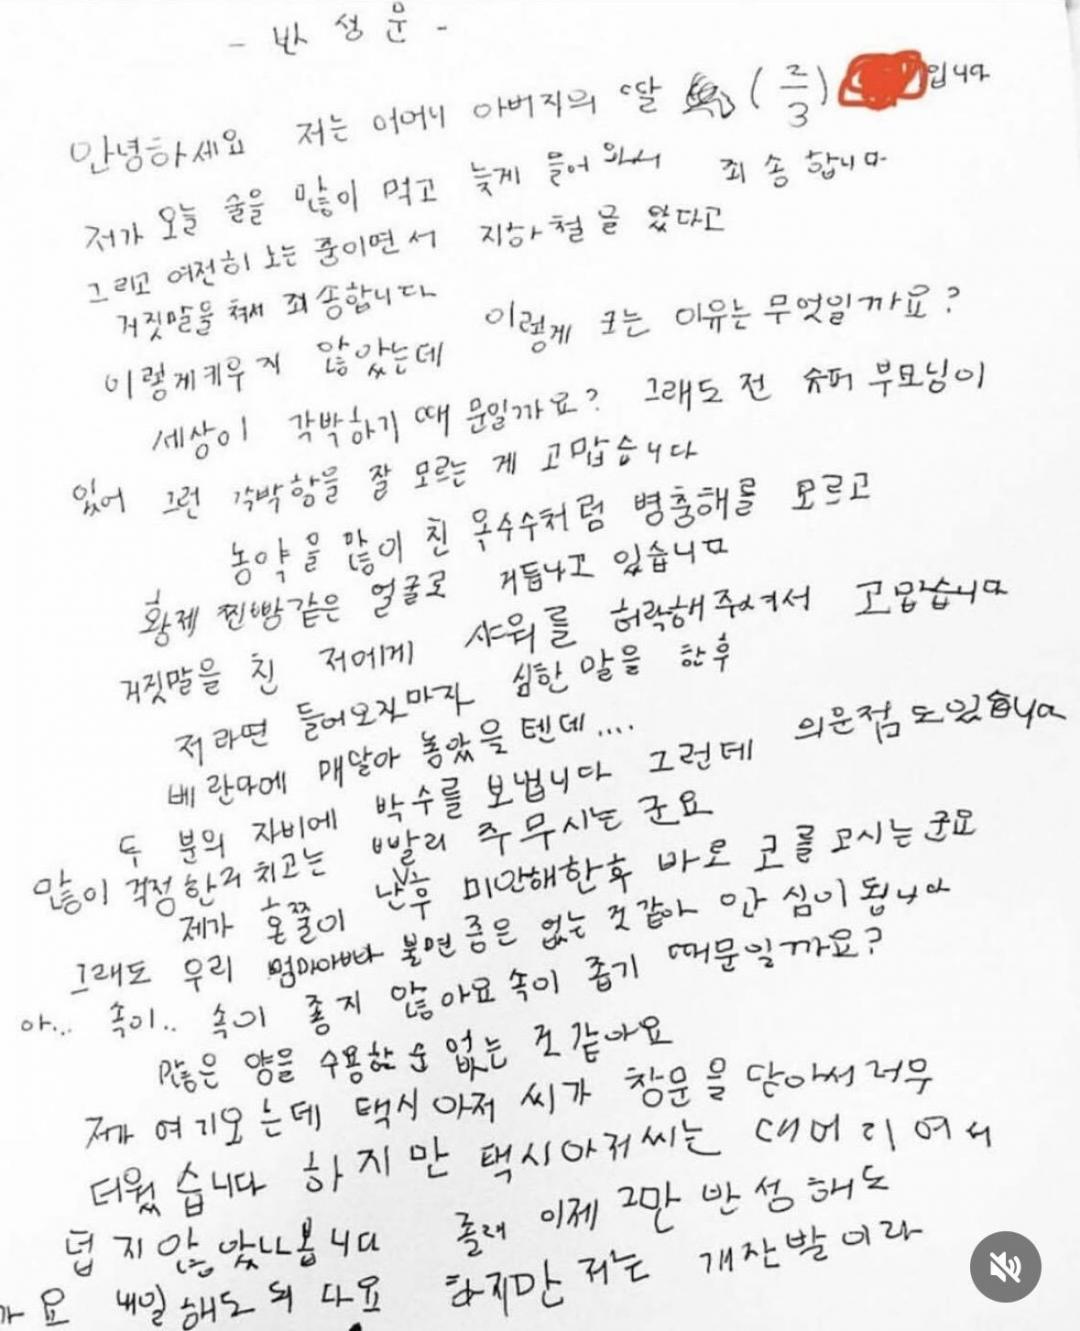 - 반성문 -
안녕하세요 저는 어머니 아버지의 딸 (2/3) 입니다
저가 오늘 술을 많이 먹고 늦게 들어와서 죄송합니다
그리고 여전히 노는 중이면서 지하철을 왔다고
거짓말을 쳐서 죄송합니다
이렇게키우지 않았는데 이렇게 크는 이유는 무엇일까요?
세상이 각박하기 때문일까요? 그래도 전 슈퍼 부모님이
있어 그런 각박함을 잘 모르는 게 고맙습니다
농약을 많이 친 옥수수처럼 병충해를 모르고
황제 찐빵같은 얼굴로 거듭나고 있습니다
거짓말을 친 저에게 샤워를 허락해주셔서 고맙습니다
저라면 들어오자마자 심한 말을 한후
베란다에 매달아 놓았을 텐데....
두 분의 자비에 박수를 보냅니다 그런데 의문점도있습니다
많이 걱정한거 치고는 빨리 주무시는군요
제가 혼쭐이 난후 미안해한후 바로 코를 고시는군요
그래도 우리 엄마아빠다 불면증은 없는 것같아 안심이됩니다
아... 속이.. 속이 좋지 않아요 속이 좁기 때문일까요?
많은 양을 수용할순 없는 것 같아요
제가 여기오는데 택시아저씨가 창문을 닫아서 너무
더웠습니다 하지만 택시아저씨는 대머리여서
덥지않았나봅니다 졸려 이제 그만 반성해도
가요 내일해도 되다요 하지만 저는 개잔발이라